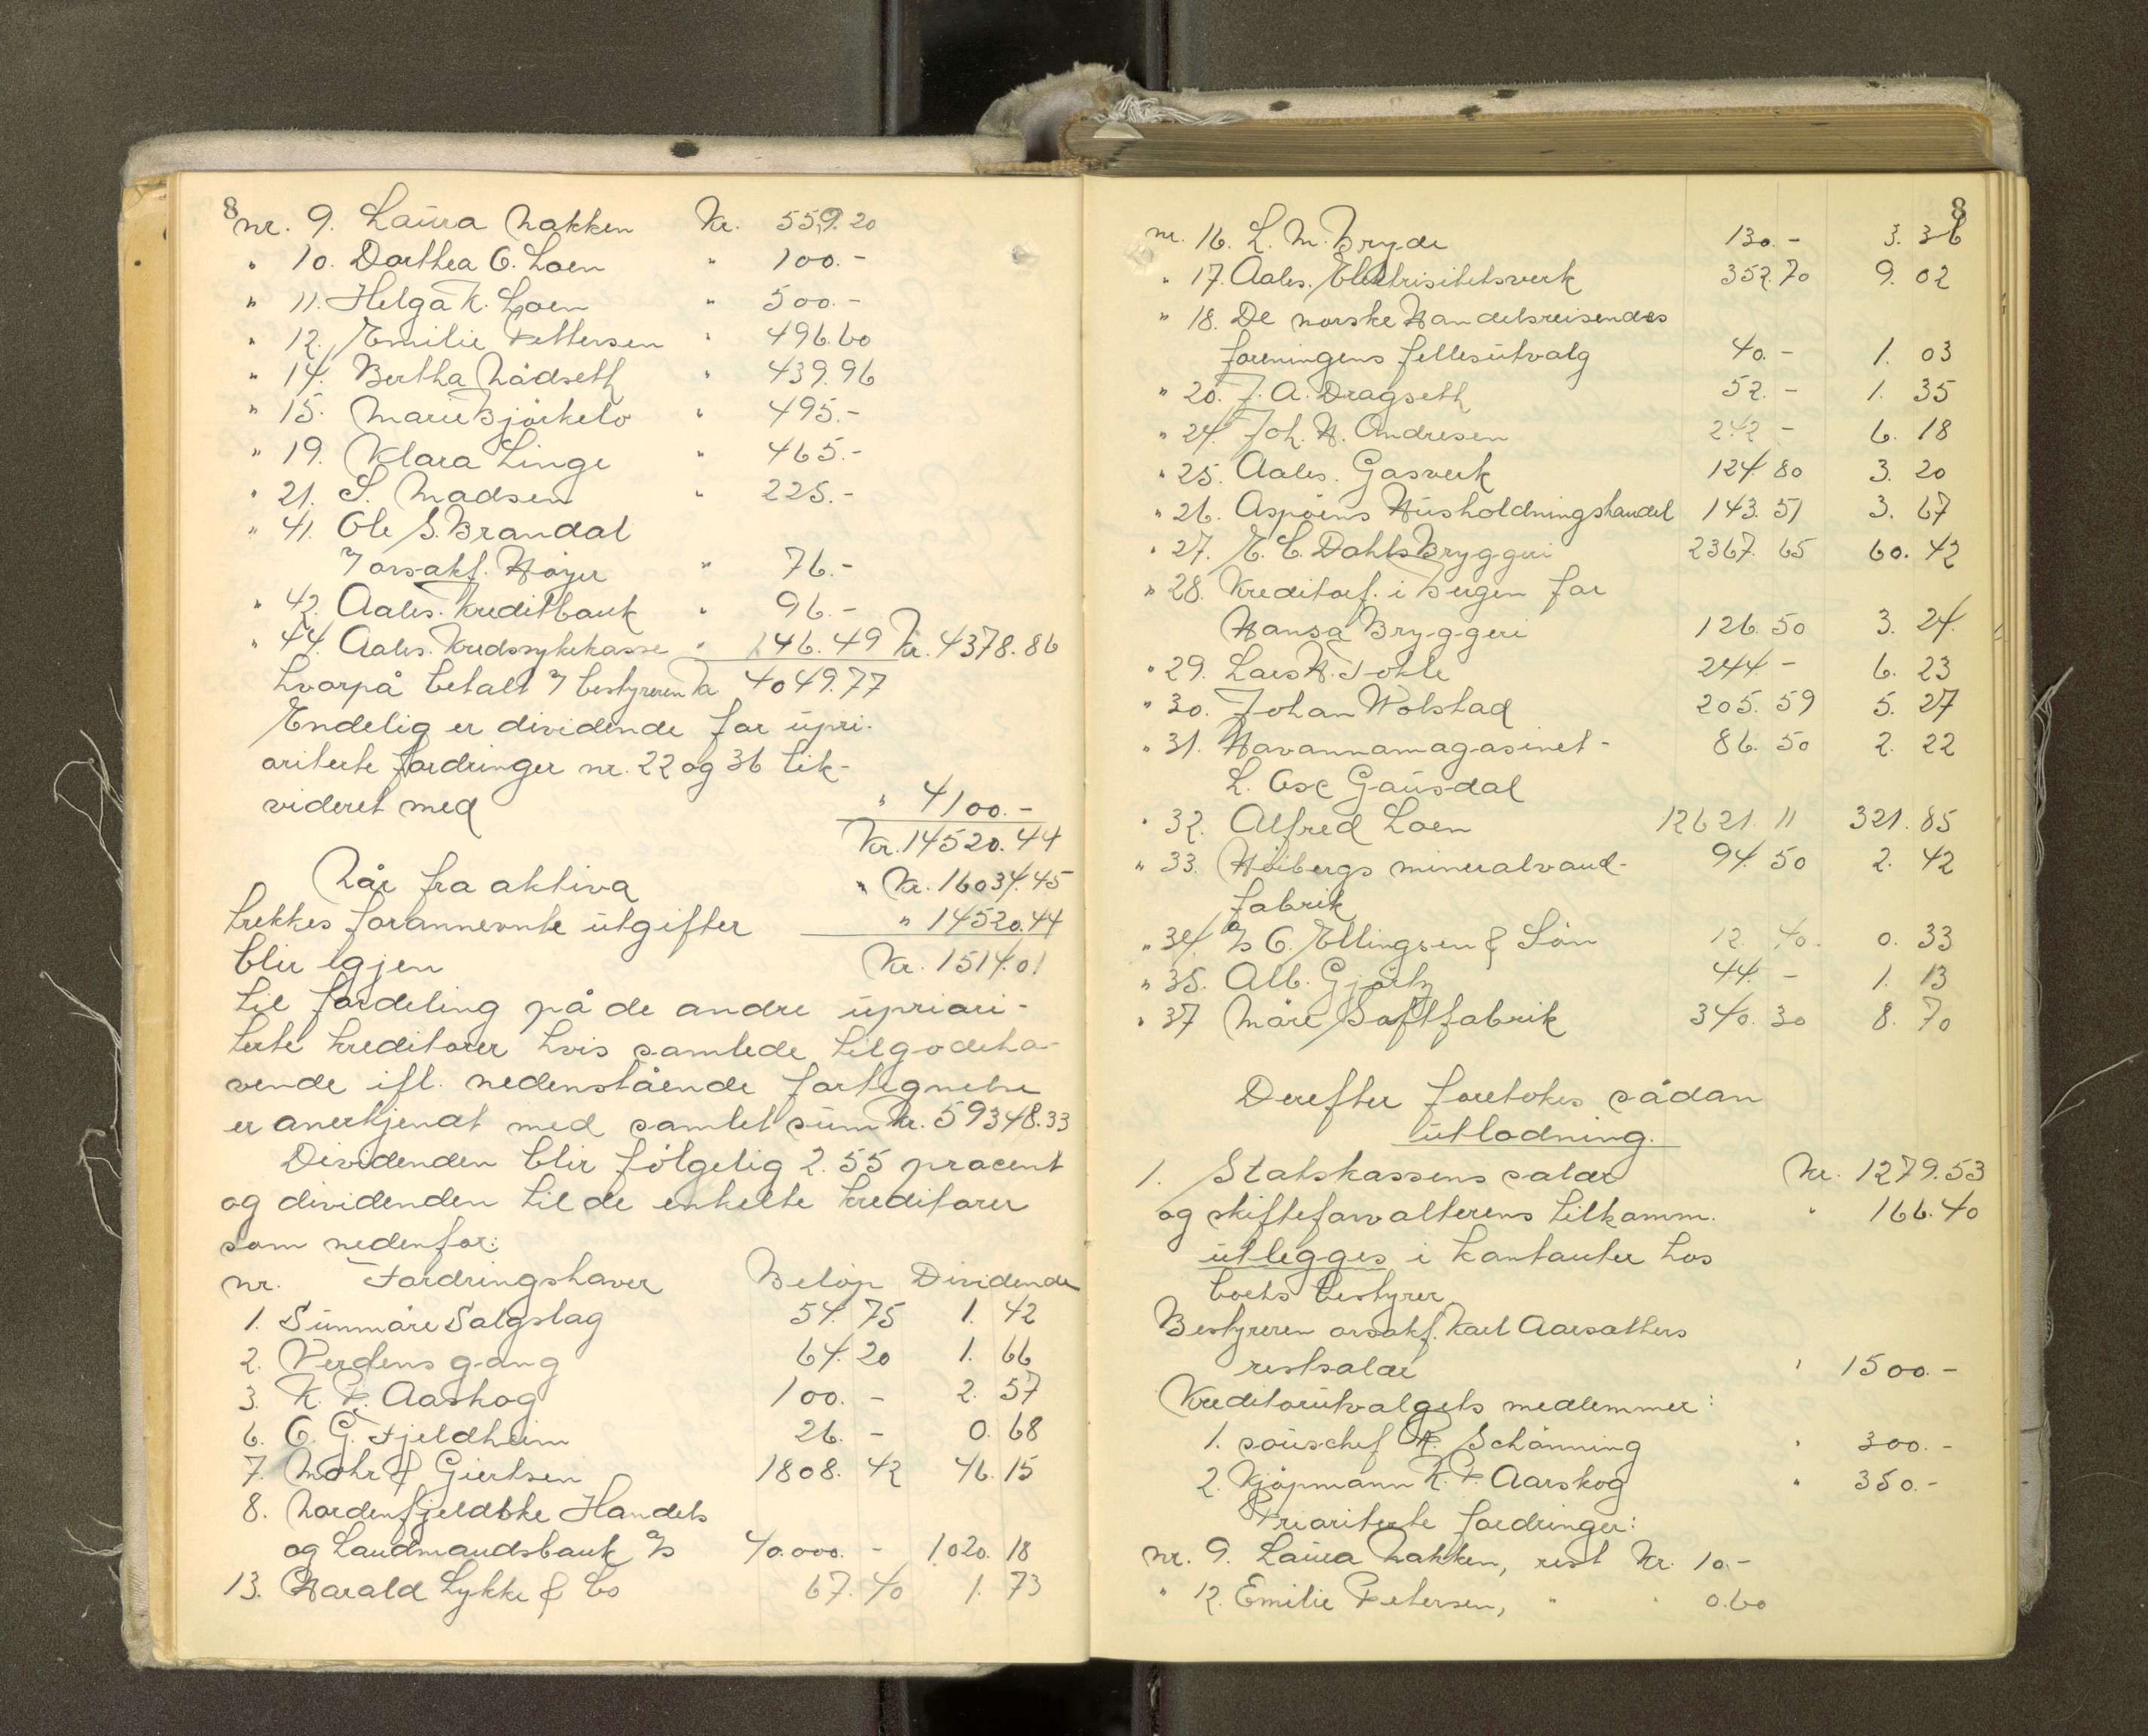 8
nr. 9. Laura Nakken Kr. 559.20
" 10. Dorthea O. Loen " 100.-
" 11. Helga K. Loen " 500.-
" 12. Emilie Pettersen " 496.60
" 14. Bertha Nådseth " 439.96
" 15. Marie Bjørkelo " 495.-
" 19. Klara Linge " 465.-
" 21. S. Madsen " 225.-
" 41. Ole S. Brandal
v/ orsakf. Høyer " 76.-
" 42. Aales. Kreditbank " 96.-
" 44. Aales. Kredssykekasse " 246.49 Kr. 4378.86
hvorpå betalt v/ bestyreren kr 4049.77
Endelig er dividende for upri-
oriterte fordringer nr. 22 og 36 lik-
videret med " 4100.-
Kr. 14520.44
Når fra aktiva " Kr. 16034.45
trekkes forannevnte utgifter " 14520.44
blir igjen Kr. 1514.01
til fordeling på de andre upriori-
terte kreditorer hvis samlede tilgodeha-
vende ifl. nedenstående fortegnelse
er anerkjendt med samlet sum Kr. 59348.33
Dividenden blir følgelig 2.55 procent
og dividenden til de enkelte kreditorer
som nedenfor:
nr. Fordringshaver Beløp Dividende
1. Sunnmøre Salgslag 54.75 1.42
2. Verdens gang 64.20 1.66
3. K. P. Aaskog 100.- 2.57
6. O. G. Fjeldheim 26.- 0.68
7. Mohr & Giertsen 1808.42 46.15
8. Nordenfjeldske Handels
og Landmandsbank A/S 40.000.- 1020.18
13. Harald Lykke & Co 67.40 1.73
8
nr. 16. L. M. Bryde 130.- 3.36
" 17. Aales. Elektrisitetsverk 352.70 9.02
" 18. De norske Handelsreisendes
foreningens fellesutvalg 40.- 1.03
" 20. J. A. Dragseth 52.- 1.35
" 24. Joh. H. Andresen 242 - 6.18
" 25. Aales. Gasverk 124.80 3.20
" 26. Aspøens Husholdningshandel 143.51 3.67
" 27. E. C. Dahls Bryggeri 2367.65 60.42
" 28. Kreditorf. i Bergen for
Hansa Bryggeri 126.50 3.24
" 29. Lars H. Tokle 244.- 6.23
" 30. Johan Wolstad 205.59 5.27
" 31. Havannamagasinet - 86.50 2.22
L. Osc Gausdal
" 32. Alfred Loen 12621.11 321.85
" 33. Høibergs mineralvand- 94.50 2.42
fabrik
" 34. A/S O. Ellingsen & Søn 12.40. 0.33
" 35. Alb. Gjørtz 44.- 1.13
" 37 Møre Saftfabrik 340.30 8.70
Derefter foretokes sådan
utlodning.
1. Statskassens salær Kr. 1279.53
og skifteforvalterens tilkomm. " 166.40
utlegges i kontanter hos
boets bestyrer
Bestyreren orsakf. Karl Aarsæthers
restsalær " 1500.-
Kreditorutvalgets medlemmer:
1. souschef R. Schønning " 300.-
2. Kjøpmann K. P. Aarskog " 350.-
Prioriterte fordringer:
nr. 9. Laura Nakken, rest Kr. 10.-
" 12. Emilie Petersen, " " 0.60